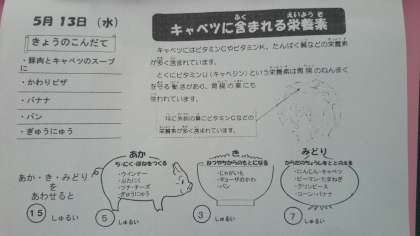 5月13日（水）
きょうのこんだて
・豚肉とキャベツのスープ
に
・かわりピザ
・バナナ
・パン
・ぎゅうにゅう
キャベツに含まれる栄養素
ふく
えいようそ
キャベツにはビタミンCやビタミンK、たんぱく質などの栄養素
が多く含まれています。
とくにビタミンU（キャベジン）という栄養素は胃腸のねんまく
を守る働きがあり、胃腸の薬にも
使われています。
特に外側の葉にビタミンCなどの
栄養素が多く含まれています。
あか・き・みどり
を
あわせると
15 しゅるい
あか
ち・にく・ほねをつくる
・ウインナー
・ぶたにく
・ツナ・チーズ
・ぎゅうにゅう
5 しゅるい
き
ねつやちからのもとになる
・じゃがいも
・ギョーザのかわ
・パン
3 しゅるい
みどり
からだのちょうしをととのえる
・にんじん・キャベツ
・ピーマン・たまねぎ
・グリンピース
・コーン・バナナ
7 しゅるい